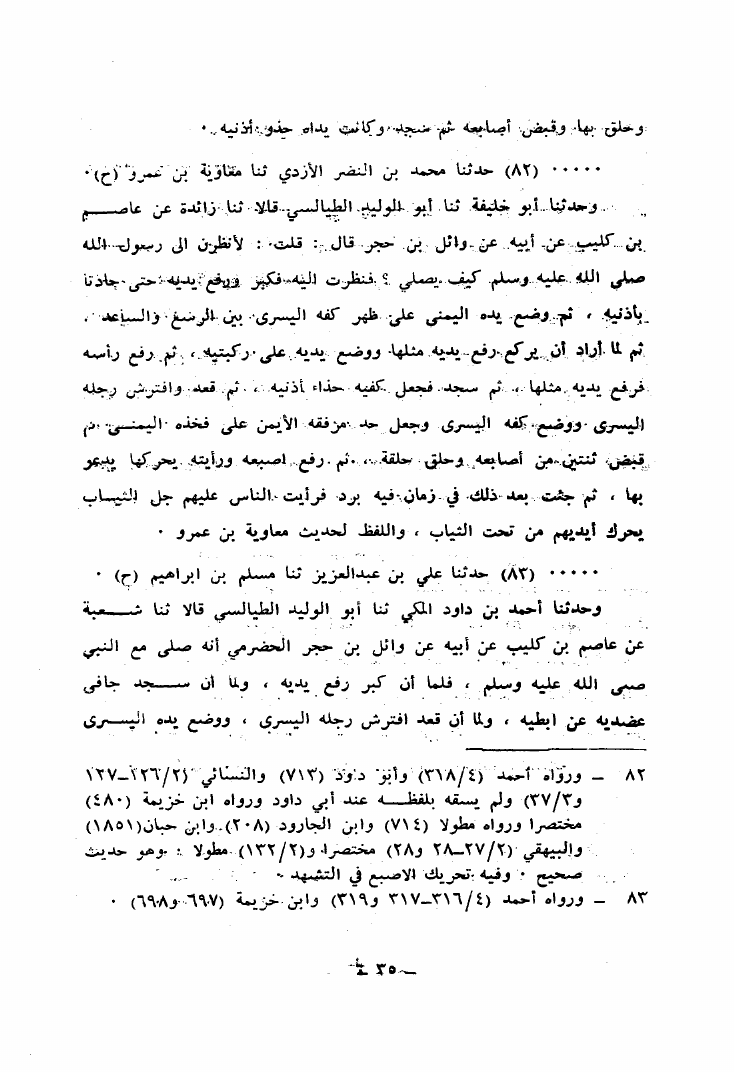 وحلق بها وقبض أصابعه ثم سجد وكانت يداه حذو أذنيه ٠
٠٠٠٠٠ (٨٢) حدثنا محمد بن النضر الأزدي ثنا معاوية بن عمرو (ح) ٠
وحدثنا أبو خليفة ثنا أبو الوليد الطيالسي قالا ثنا زائدة عن عاصم
بن كليب عن أبيه عن وائل بن حجر قال : قلت : لأنظرن الى رسول الله
صلي الله عليه وسلم كيف يصلي ؟ فنظرت اليه فكبر ورفع يديه حتى حاذتا
بأذنيه ، ثم وضع يده اليمنى على ظهر كفه اليسرى بين الرسغ والساعد ،
ثم لما أراد أن يركع رفع يديه مثلها ووضع يديه على ركبتيه ، ثم رفع رأسه
فرفع يديه مثلها ، ثم سجد فجعل كفيه حذاء أذنيه ، ثم قعد وافترش رجله
اليسرى ووضع كفه اليسرى وجعل حد مرفقه الأيمن على فخذه اليمنى ثم
قبض ثنتين من أصابعه وحلق حلقة ، ثم رفع اصبعه ورأيته يحركها يدعو
بها ، ثم جئت بعد ذلك في زمان فيه برد فرأيت الناس عليهم جل الثياب
يحرك أيديهم من تحت الثياب ، واللفظ لحديث معاوية بن عمرو ٠
٠٠٠٠٠ (٨٣) حدثنا علي بن عبدالعزيز ثنا مسلم بن ابراهيم (ح) ٠
وحدثنا أحمد بن داود المكي ثنا أبو الوليد الطيالسي قالا ثنا شعبة
عن عاصم بن كليب عن أبيه عن وائل بن حجر الحضرمي أنه صلى مع النبي
صلى الله عليه وسلم ، فلما أن كبر رفع يديه ، ولما أن سجد جافى
عضديه عن ابطيه ، ولما أن قعد افترش رجله اليسرى ، ووضع يده اليسرى
٨٢ – ورواه أحمد (٣١٨/٤) وأبو داود (٧١٣) والنسائي (١٢٦/٢–١٢٧
و٣٧/٣) ولم يسقه بلفظه عند أبي داود ورواه ابن خزيمة (٤٨٠)
مختصرا ورواه مطولا (٧١٤) وابن الجارود (٢٠٨) وابن حبان (١٨٥١)
والبيهقي (٢٧/٢–٢٨ و٢٨) مختصرا و(١٣٢/٢) مطولا : وهو حديث
صحيح ٠ وفيه تحريك الاصبع في التشهد ٠
٨٣ – ورواه أحمد (٣١٦/٤–٣١٧ و٣١٩) وابن خزيمة (٦٩٧ و٦٩٨) ٠
– ٣٥ –